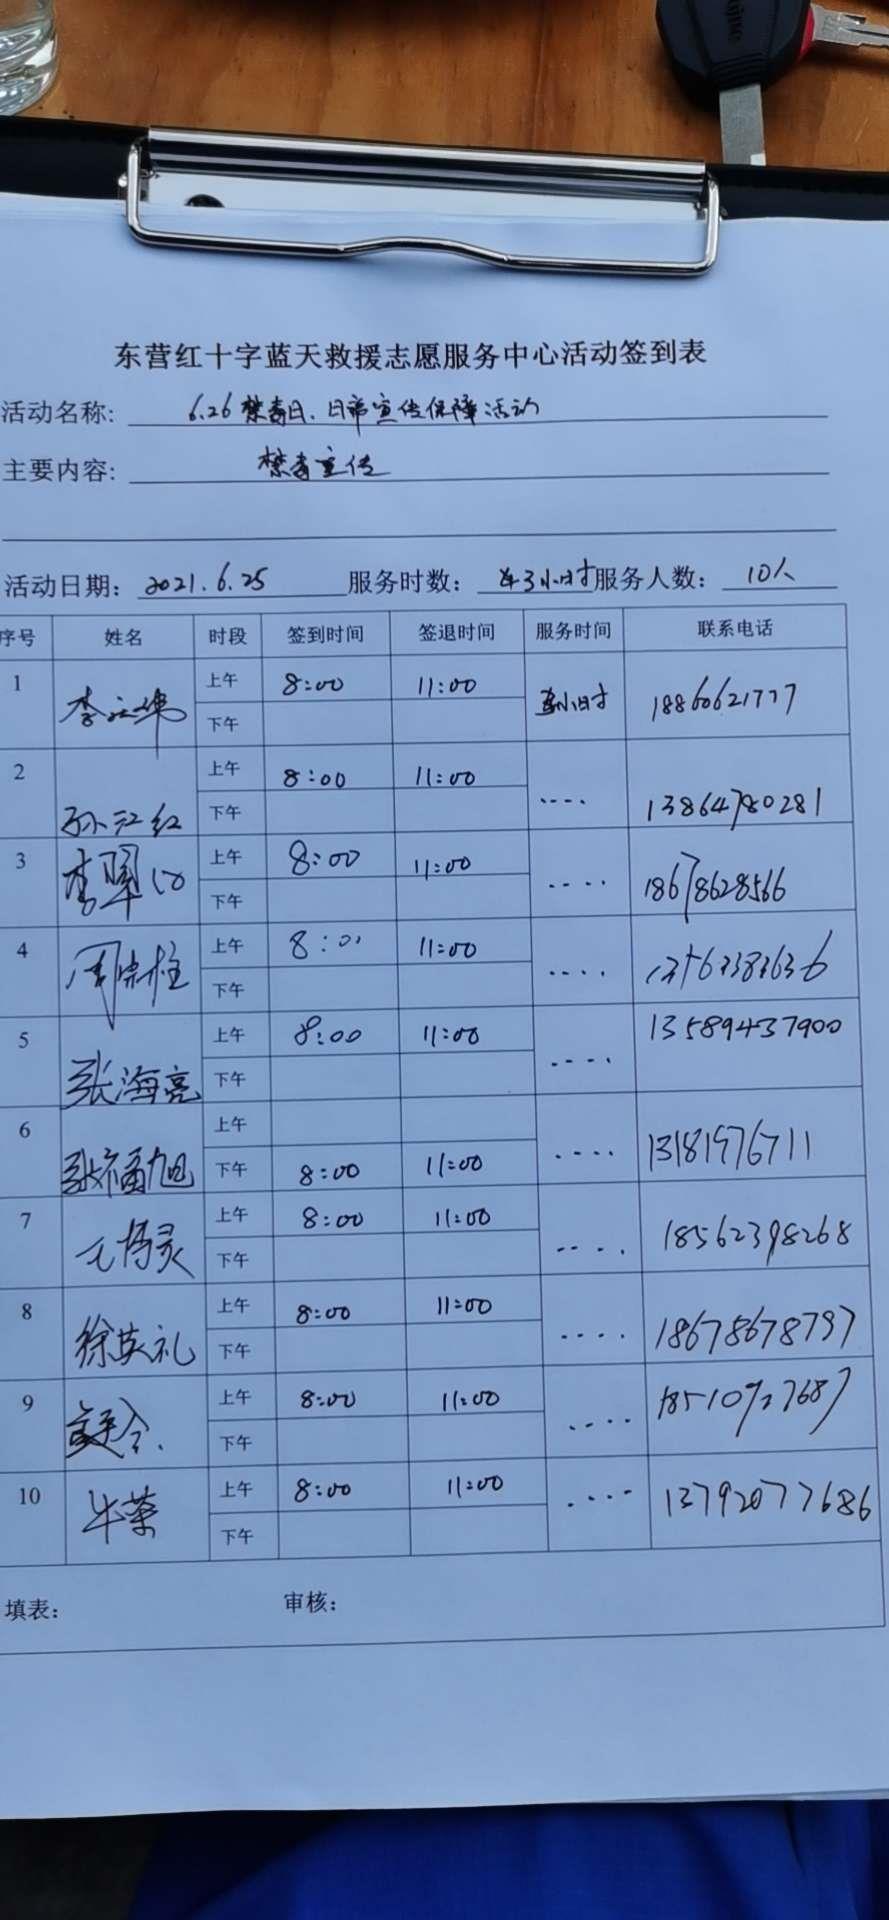 东营红十字蓝天救援志愿服务中心活动签到表
活动名称: 6.26禁毒日、日常宣传保障活动
主要内容: 禁毒宣传
活动日期: 2021.6.25 服务时数: 3小时 服务人数: 10人
序号 姓名 时段 签到时间 签退时间 服务时间 联系电话
1 李 上午 8:00 11:00 3小时 18860621777
下午
2 孙江红 上午 8:00 11:00 .... 13864780281
下午
3 李翠 上午 8:00 11:00 .... 18678628566
下午
4 周宗柱 上午 8:00 11:00 ....
下午
5 张海亮 上午 8:00 11:00 .... 13589437900
下午
6 张福旭 上午 .... 13181976711
下午 8:00 11:00
7 上午 8:00 11:00 .... 18562398268
下午
8 徐英礼 上午 8:00 11:00 .... 18678678797
下午
9 上午 8:00 11:00 ....
下午
10 牛荣 上午 8:00 11:00 .... 13792077686
下午
填表: 审核: